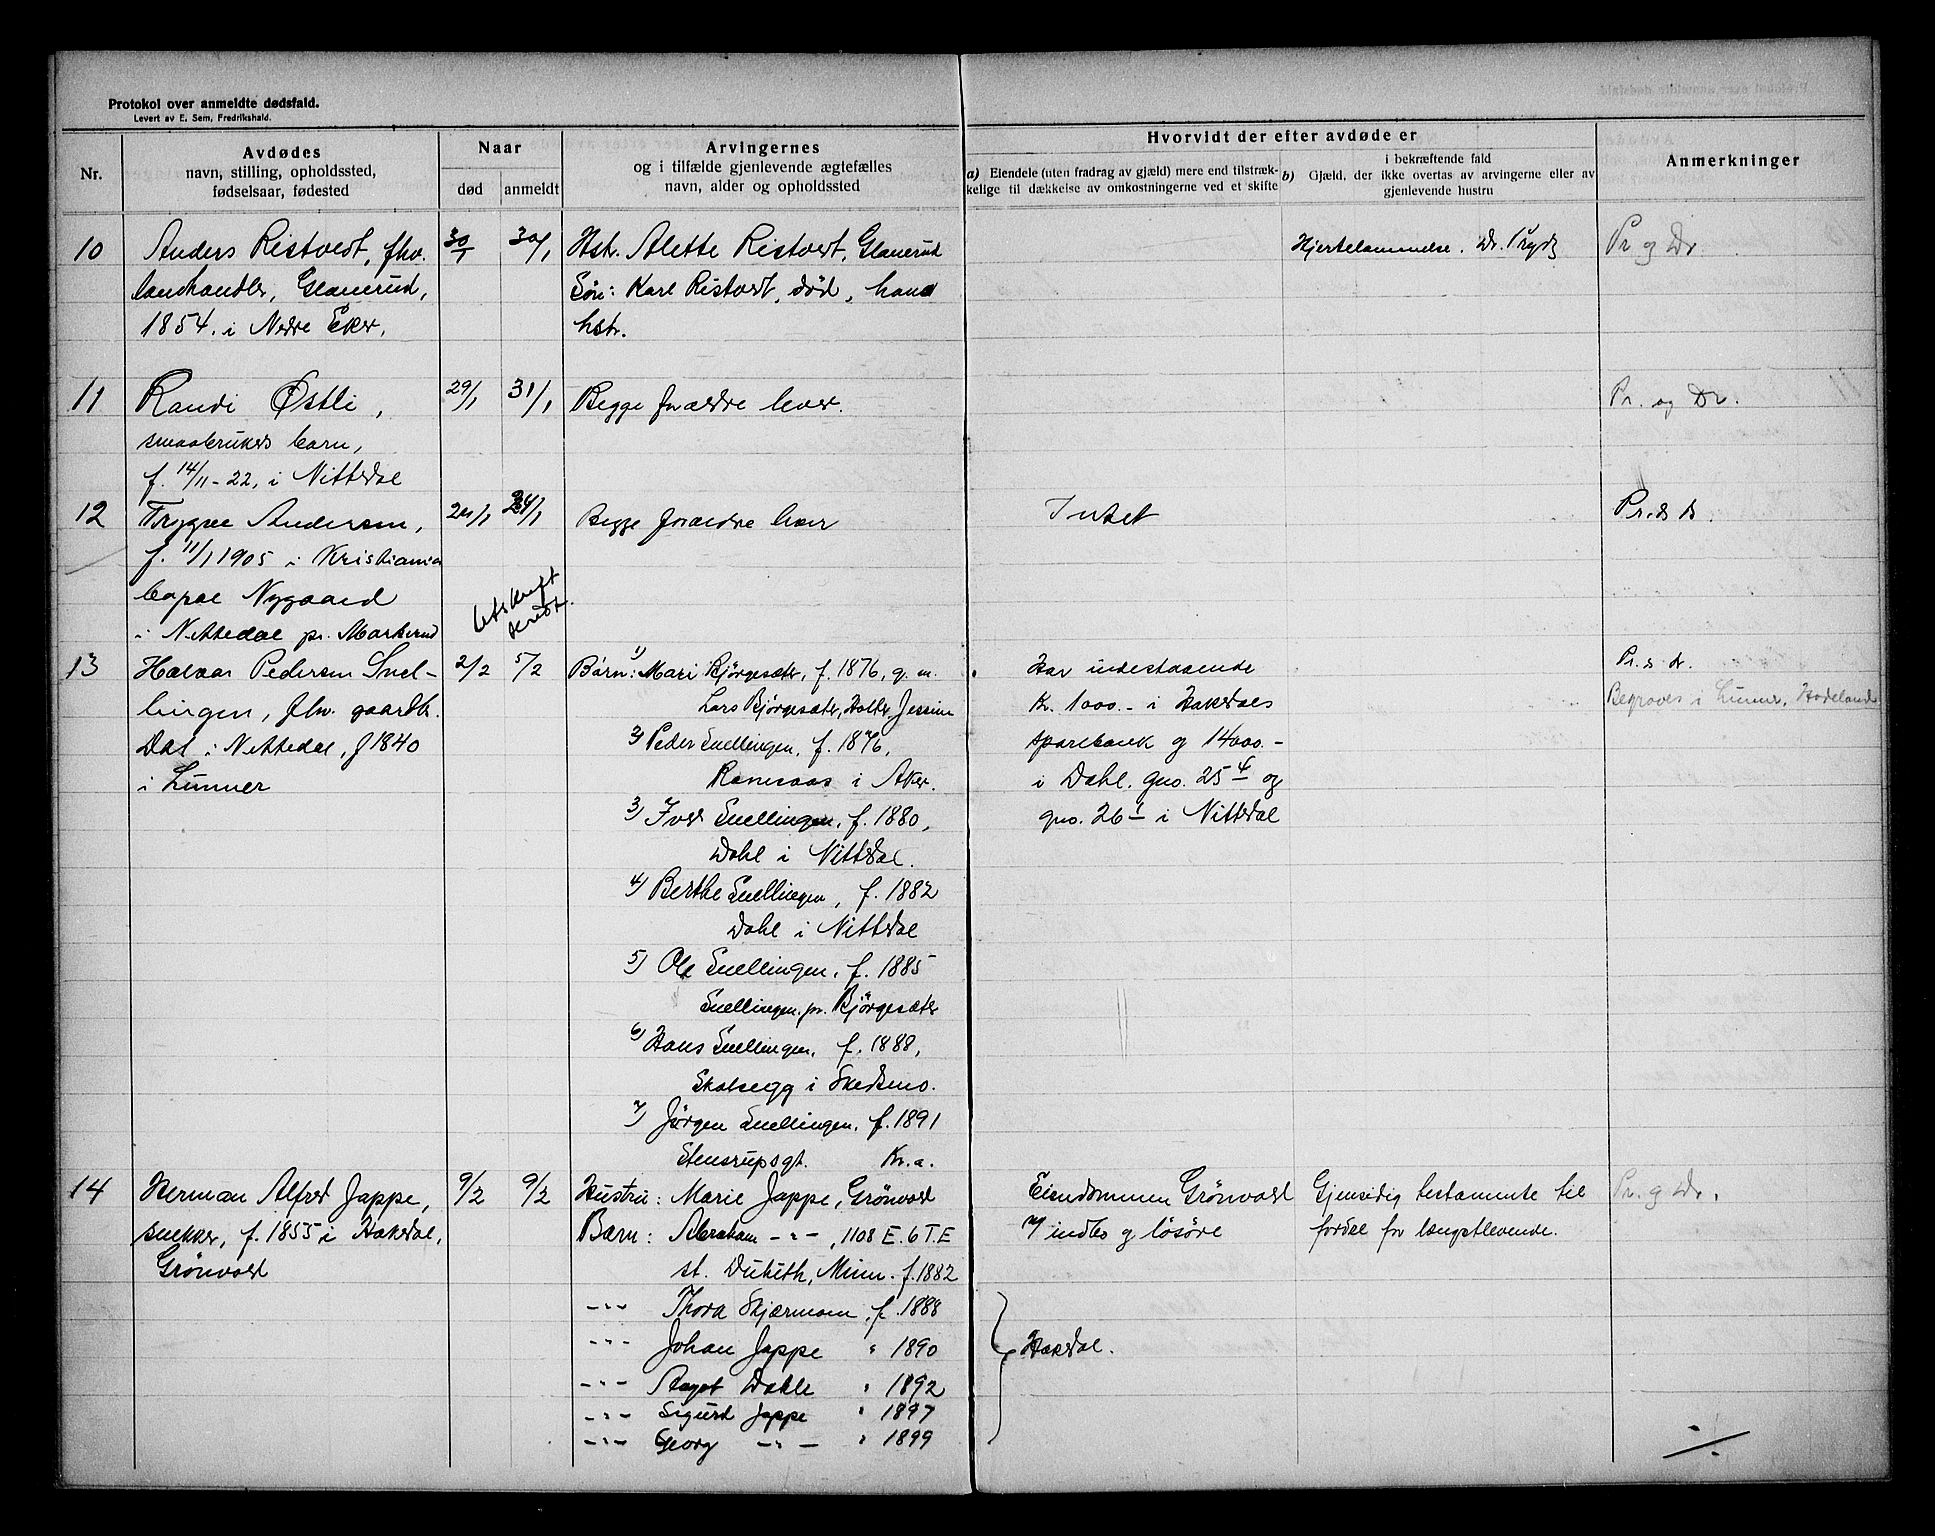 Protokol over anmeldte dødsfald.
Levert av E. Sem, Fredrikshald.
Nr.
Avdødes
navn, stilling, opholdssted,
fødselsaar, fødested
Naar
død
anmeldt
Arvingernes
og i tilfælde gjenlevende ægtefælles
navn, alder og opholdssted
Hvorvidt der efter avdøde er
a) Eiendele (uten fradrag av gjæld) mere end tilstræk-
kelige til dækkelse av omkostningerne ved et skifte
i bekræftende fald
b) Gjæld, der ikke overtas av arvingerne eller av
gjenlevende hustru
Anmerkninger
10
Anders Ristvedt, fhv.
landhandler, Glanerud,
1854. i Nedre Eker.
30/1
30/1
Hst. Alette Ristvedt, Glanerud
Søn: Karl Ristvedt, død, hans
hstr.
Hjertelammelse. Dr. Prydz
Pr. og Dr.
11
Randi Østli,
smaabrukers barn,
f. 14/11-22, i Nittedal
29/1
31/1
Begge forældre lever.
Pr. og Dr.
12
Trygve Andersen,
f. 11/1 1905 i Kristiania
Nygaard
i Nittedal pr. Markerud
24/1
Begge forældre lever
Intet
Pr. & dr.
utskrift
sendt.
13
Halvor Pedersen Snel-
lingen, fhv. gaardbr.
Dal i Nittedal, f 1840
i Lunner
2/2
5/2
Børn: 1) Mari Bjørgesæter, f. 1876, g. m.
Lars Bjørgesæter, Holter, Jessum
2) Peder Snellingen, f. 1876,
i Aker.
3) Iver Snellingen, f. 1880,
Dahl i Nittedal.
4) Berthe Snellingen, f. 1882
Dahl i Nittedal
5) Ole Snellingen, f. 1885
Snellingen, pr. Bjørgesæter
6) Hans Snellingen, f. 1888,
Skalsegg i Skedsmo.
7) Jørgen Snellingen, f. 1891
Stensrupsgt. Kr.a.
Har indestaaende
Kr. 1000.- i Hakedals
sparebank og 14000.-
i Dahl, gno. 25 4 og
gno. 26 1 i Nittedal
Pr. & dr.
Begraves i Lunner, Hadeland
14
Herman Alfred Jappe,
snekker, f. 1855 i Hakedal,
Grönvold
9/2
9/2
Hustru: Marie Jappe, Grönvold
Barn: Abraham -"-, 1108 E. 6 T.E
st. Duluth, Minn. f. 1882
-"- Thora Skjærmoen f. 1888
-"- Johan Jappe " 1890
-"- Aagot Dahle " 1892
-"- Sigurd Jappe " 1897
-"- Georg -"- " 1899
Eiendommen Grönvold
m/ indbo og løsøre
Hakedal.
Gjensidig testamente til
fordel for længstlevende.
Pr. og Dr.